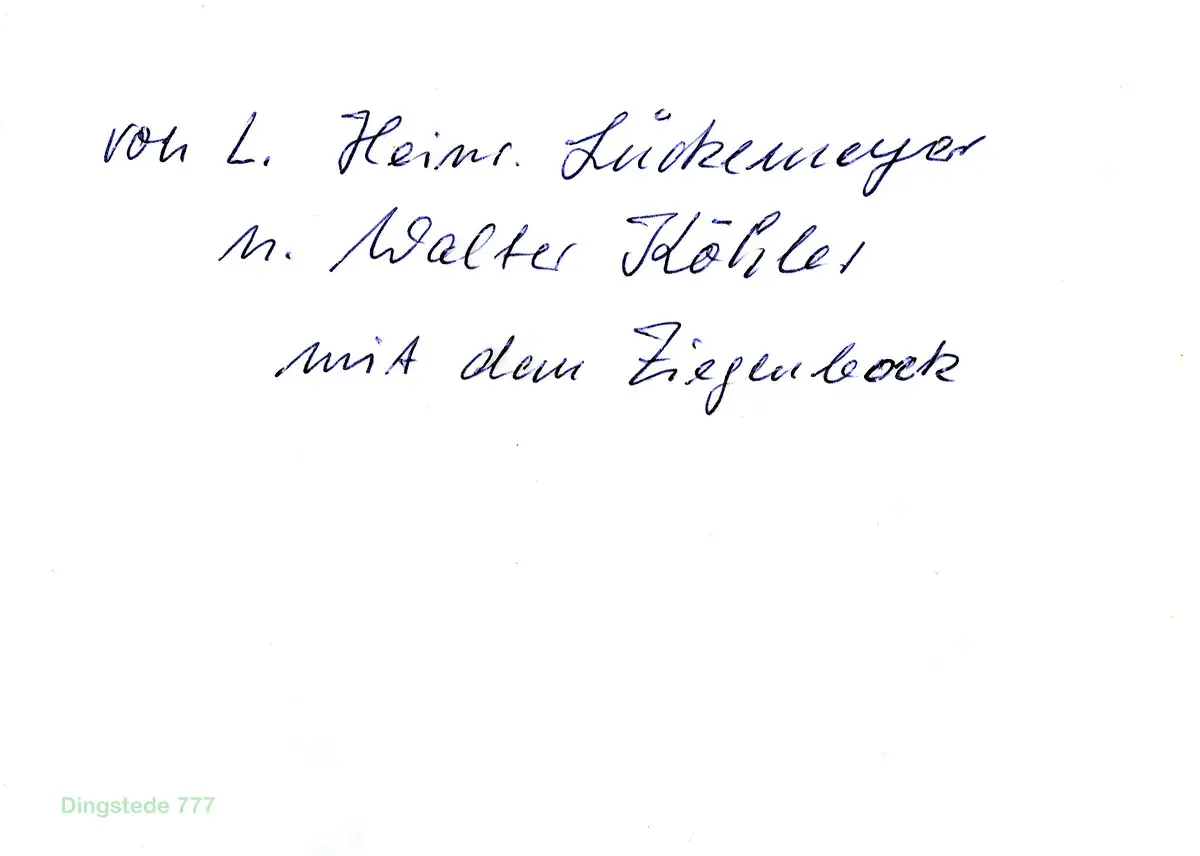 von L. Heinr. Lückemeyer
u. Walter Köhler
mit dem Ziegenbock
Dingstede 777